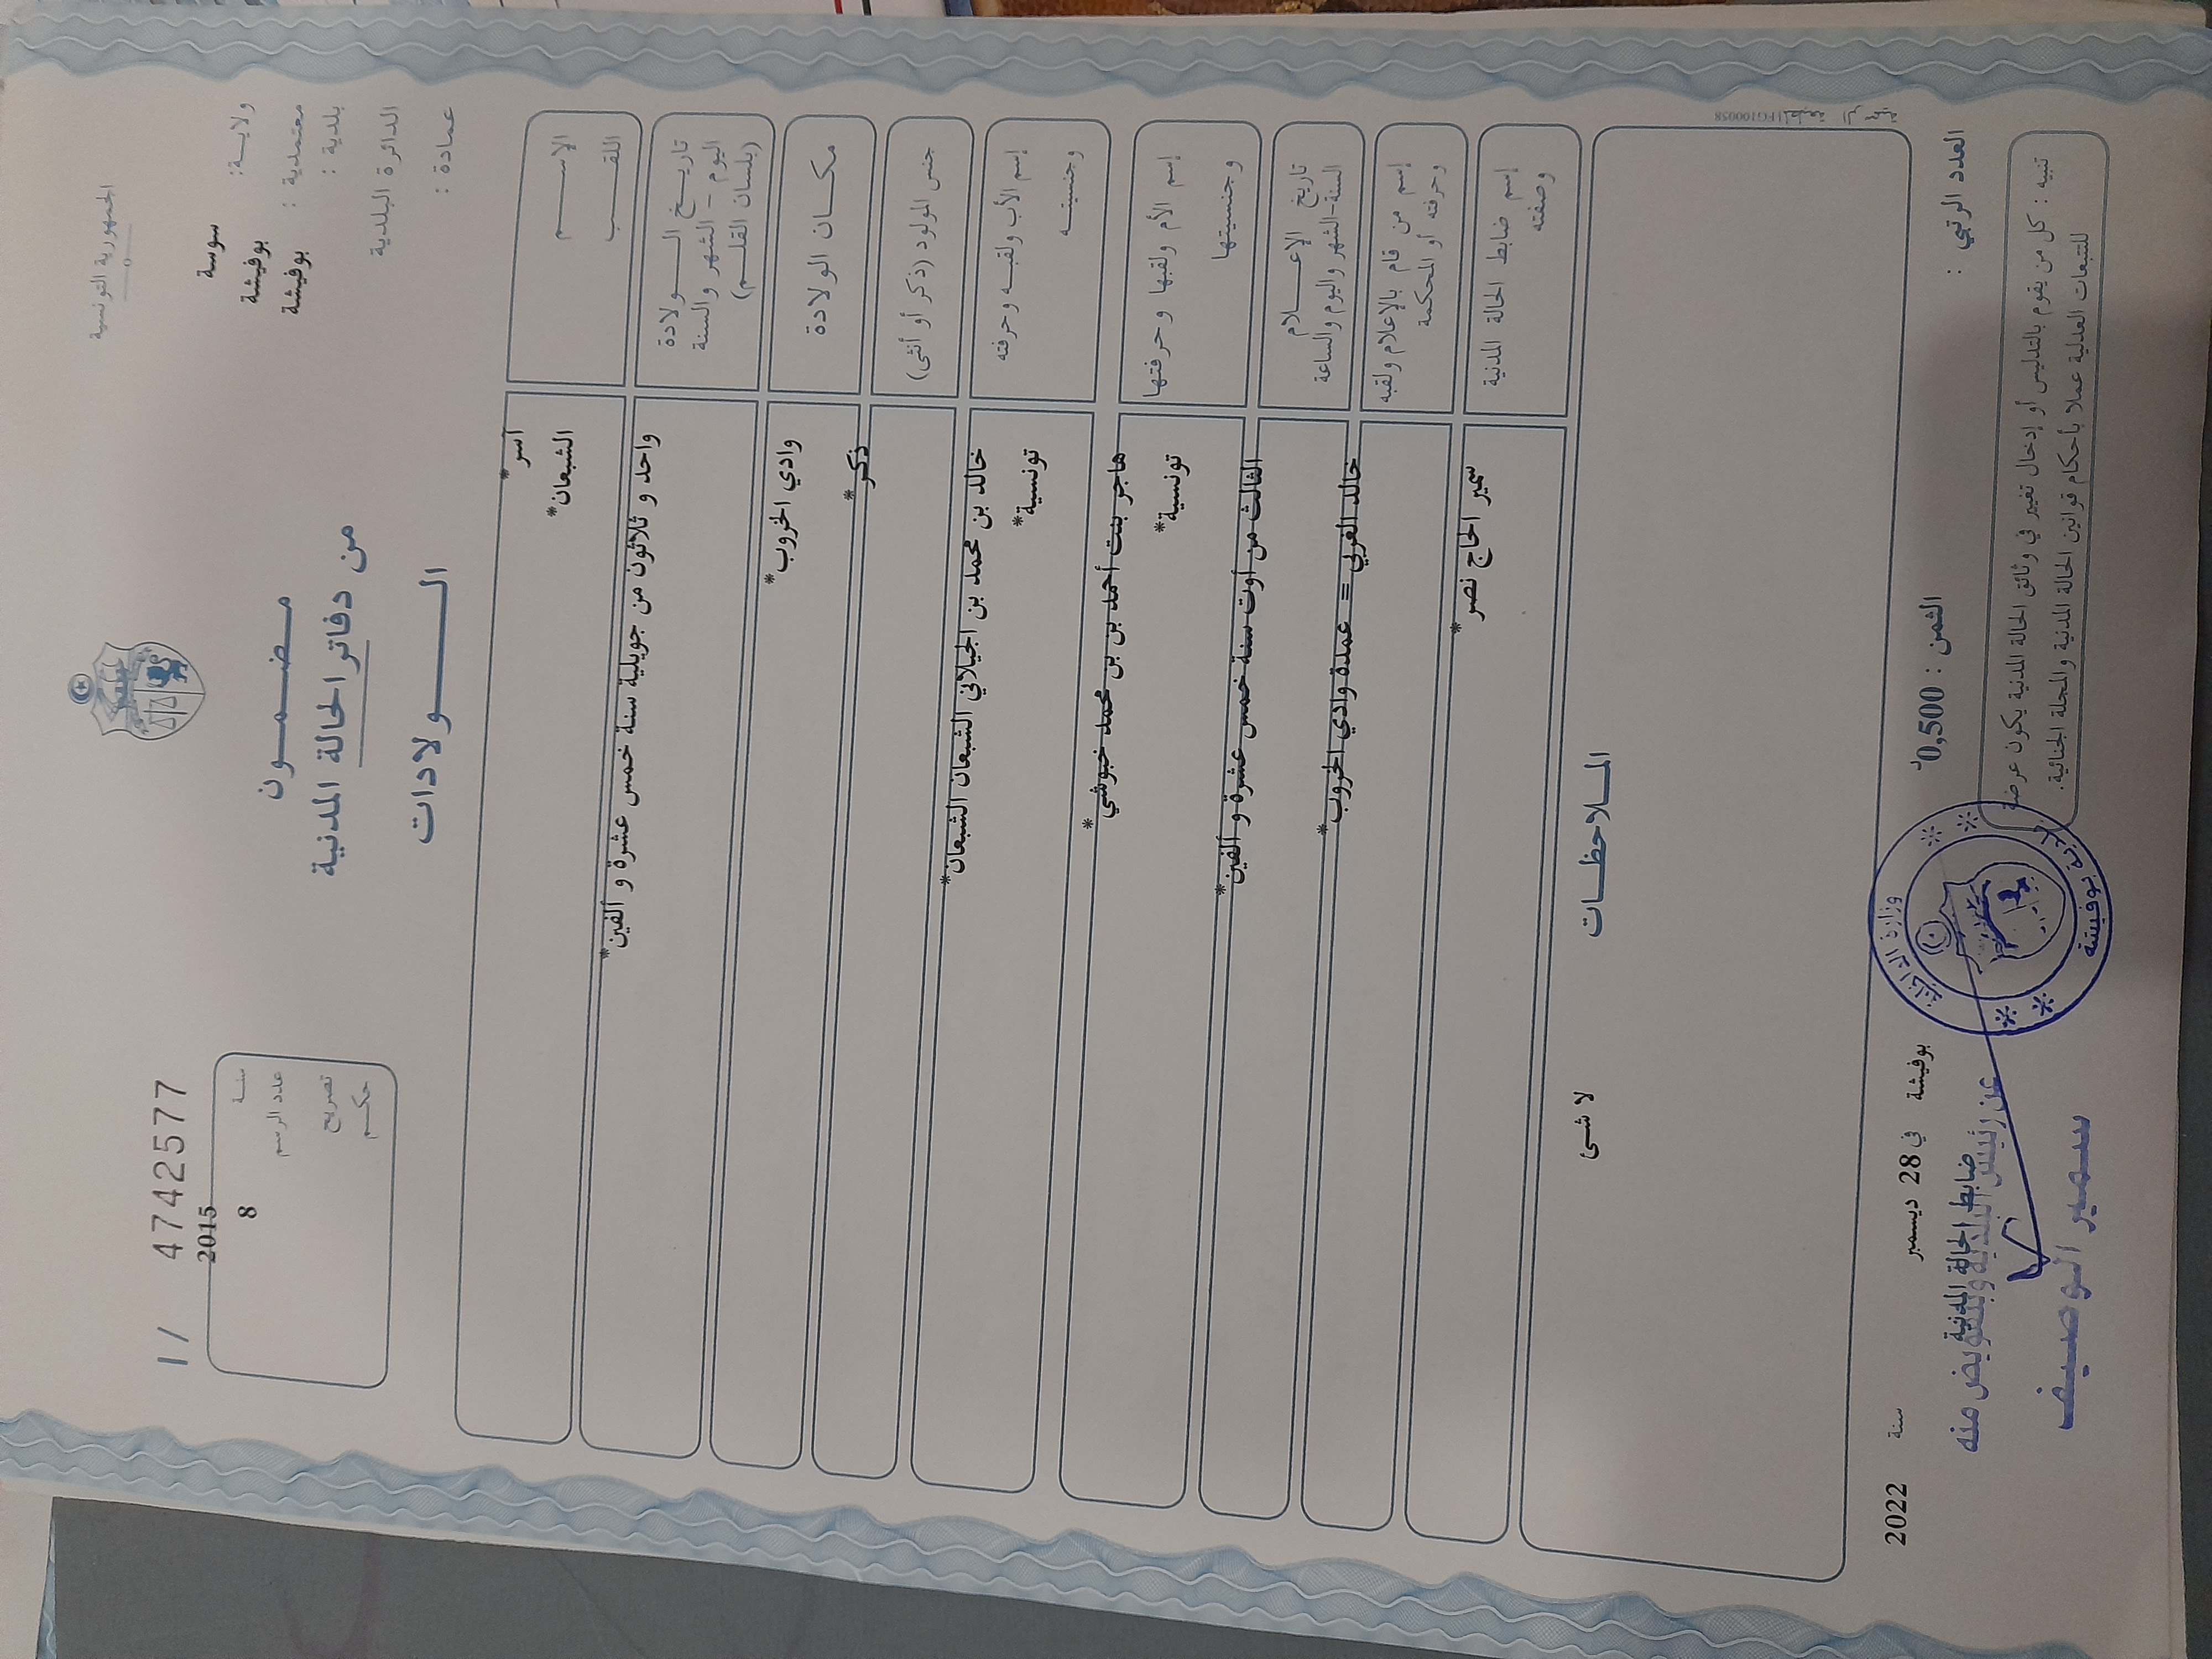 الجمهورية التونسية
ولايـــة: سوسة
معتمدية : بوفيشة
بلدية : بوفيشة
الدائرة البلدية
عمادة :
مـضـــمـــون
من دفاتر الحالة المدنية
الـــــولادات
1/ 4742577
سنــة 2015
عدد الرسم 8
تصريح
حكـــم
الاســـــم أسر*
اللقـــب الشبعان*
تاريـــخ الـــــولادة واحد و ثلاثون من جويلية سنة خمس عشرة و ألفين*
اليوم – الشهر والسنة
(بلسان القلـــم)
مكـــان الولادة وادي الخروب*
جنس المولود (ذكر أو أنثى) ذكر*
إسم الأب ولقبـــه وحرفته خالد بن محمد بن الجيلاني الشبعان الشبعان*
وجنسيتـــه تونسية*
إسم الأم ولقبها وحرفتها هاجر بنت أحمد بن بن محمد خبوشي*
وجنسيتها تونسية*
تاريخ الإعـــلام الثالث من أوت سنة خمس عشرة و ألفين*
السنة-الشهر واليوم والساعة
إسم من قام بالإعلام ولقبه خالد الغربي = عمدة وادي الخروب*
وحرفته أو المحكمة
إسم ضابط الحالة المدنية سمير الحاج نصر*
وصفته
المـــلاحظـــات
لا شئ
1FG100058
العدد الرتبي :
الثمن : 0,500د
بوفيشة في 28 ديسمبر سنة 2022
تنبيه : كل من يقوم بالتدليس أو إدخال تغيير في وثائق الحالة المدنية يكون عرضة
للتتبعات العدلية عملا بأحكام قوانين الحالة المدنية والمجلة الجنائية.
ضابط الحالة المدنية
عن رئيس البلدية وبتفويض منه
سمير الوصيف
وزارة الداخلية
بلدية بوفيشة